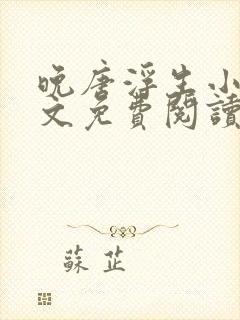 晚唐浮生小
文免費閱讀
蘇芷